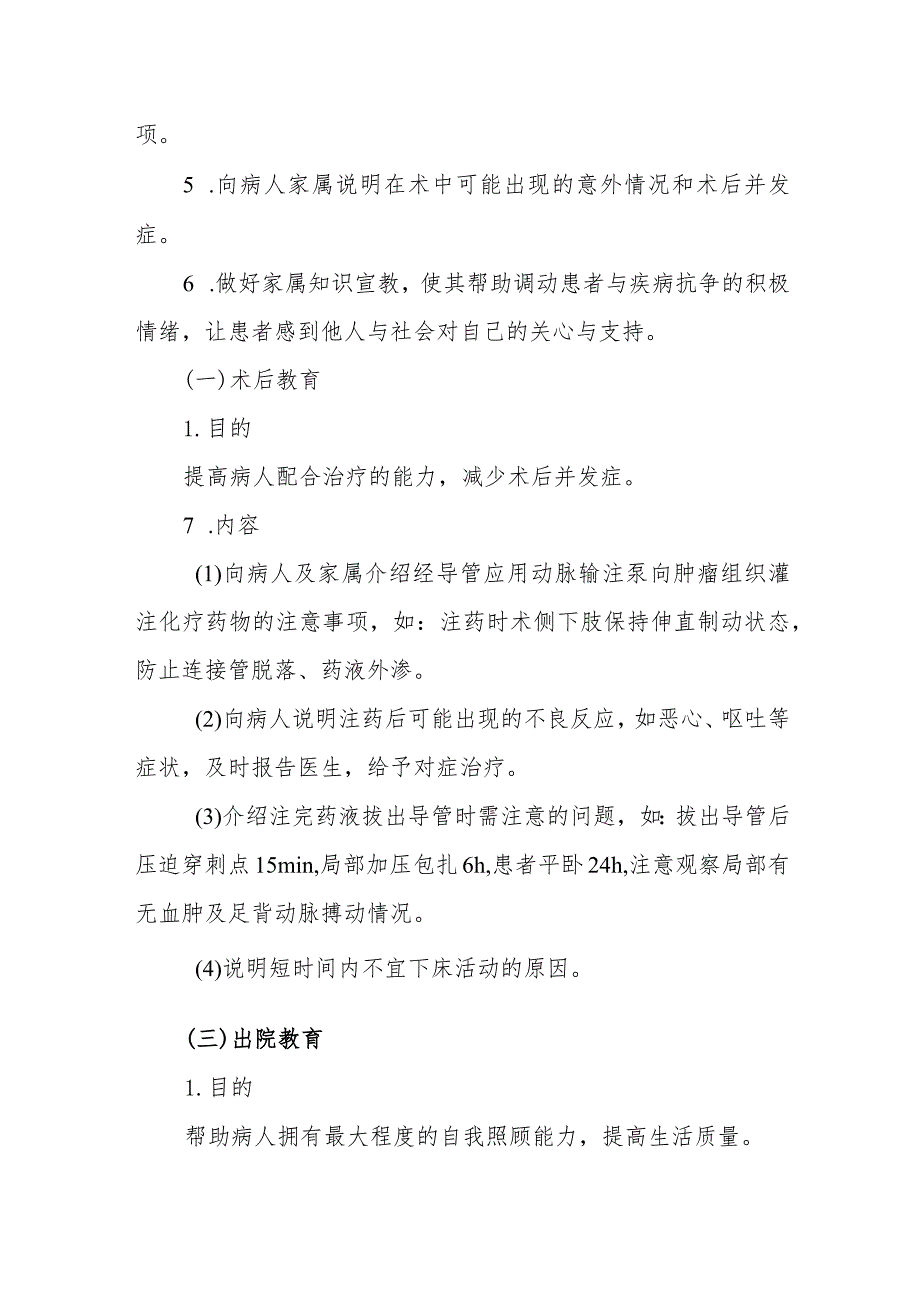 项。
5 .向病人家属说明在术中可能出现的意外情况和术后并发
症。
6 .做好家属知识宣教，使其帮助调动患者与疾病抗争的积极
情绪，让患者感到他人与社会对自己的关心与支持。
(一)术后教育
1. 目的
提高病人配合治疗的能力，减少术后并发症。
7 .内容
(1)向病人及家属介绍经导管应用动脉输注泵向肿瘤组织灌
注化疗药物的注意事项，如：注药时术侧下肢保持伸直制动状态，
防止连接管脱落、药液外渗。
(2)向病人说明注药后可能出现的不良反应，如恶心、呕吐等
症状，及时报告医生，给予对症治疗。
(3)介绍注完药液拔出导管时需注意的问题，如：拔出导管后
压迫穿刺点 15min,局部加压包扎 6h,患者平卧 24h,注意观察局部有
无血肿及足背动脉搏动情况。
(4)说明短时间内不宜下床活动的原因。
(三)出院教育
1. 目的
帮助病人拥有最大程度的自我照顾能力，提高生活质量。